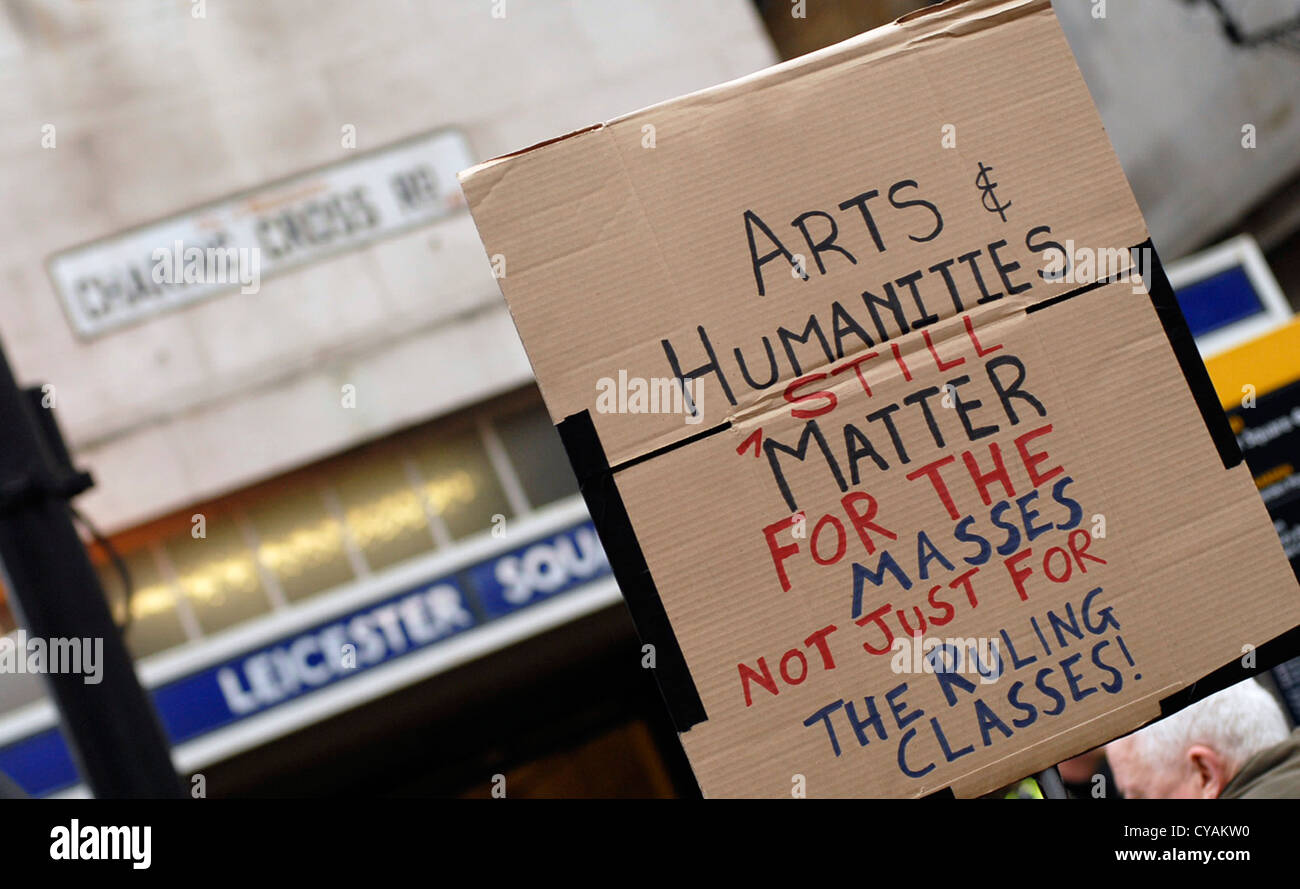 CHARING CROSS RD
LEICESTER SQU
ARTS &
HUMANITIES
STILL
^MATTER
FOR THE
MASSES
NOT JUST FOR
THE RULING
CLASSES!
a
alamy
Image ID: CYAKW0
www.alamy.com